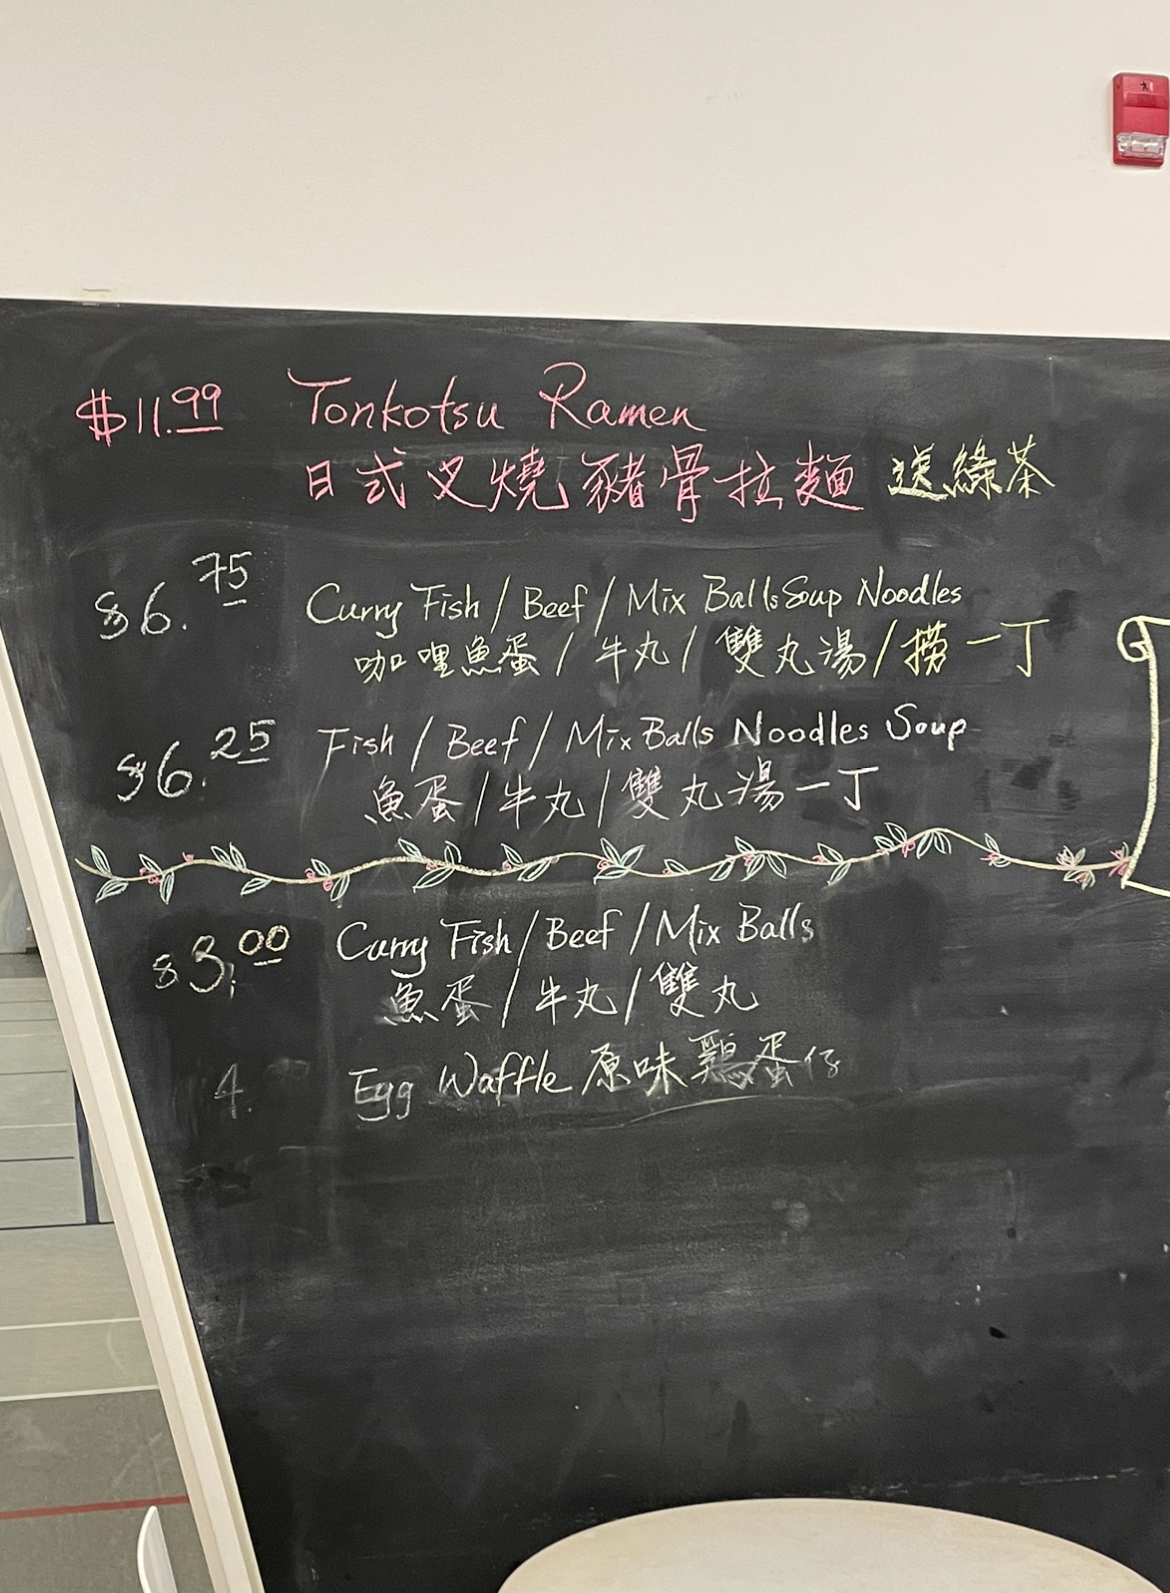 $11.99 Tonkotsu Ramen
日式叉燒豬骨拉麵 送綠茶
$6.75 Curry Fish / Beef / Mix Balls Soup Noodles
咖哩魚蛋 / 牛丸 / 雙丸湯 / 撈一丁
$6.25 Fish / Beef / Mix Balls Noodles Soup
魚蛋 / 牛丸 / 雙丸湯一丁
$3.00 Curry Fish / Beef / Mix Balls
魚蛋 / 牛丸 / 雙丸
4. Egg Waffle 原味鷄蛋仔